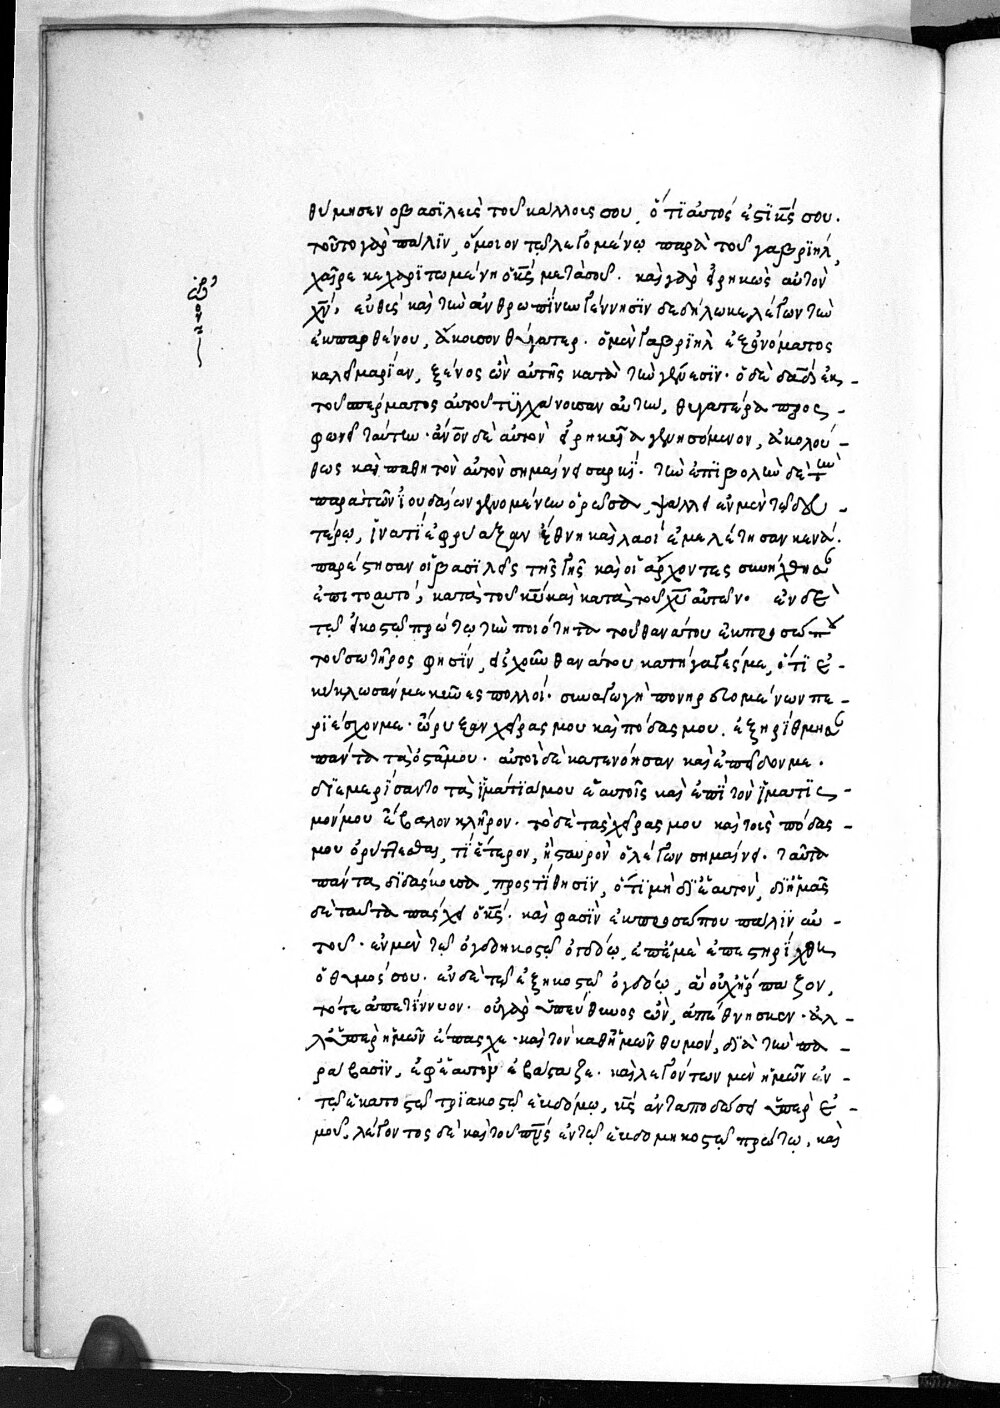 θύμησεν ὁ βασϊλεὺς τοῦ κάλλους σου, ὅτϊ αὐτός ἐστϊ κ̅ς̅ σου.
τοῦτο γὰρ πάλϊν, ὅμοιον τῷ λεγομένῳ παρὰ τοῦ γαβρϊὴλ,
χαῖρε κεχαρϊτωμένη ὁ κ̅ς̅ μετὰ σοῦ. καὶ γὰρ εἰρηκὼς αὐτὸν
χ̅ν̅, εὐθὺς καὶ τὴν ἀνθρωπίνην γέννησϊν δεδήλωκε λέγων τὴν
ἐκ παρθένου, ἄκουσον θύγατερ. ὁ μὲν γαβρϊὴλ ἐξ ὀνόματος
καλεῖ μαρίαν, ξένος ὢν αὐτῆς κατὰ τὴν γένεσϊν. ὁ δὲ δα̅δ̅ ἐκ -
τοῦ σπέρματος αὐτοῦ τϋγχάνουσαν αὐτὴν, θυγατέρα προς -
φωνεῖ ταύτην. ἄν̅ο̅ν̅ δὲ αὐτὸν εἰρηκὼς γενησόμενον, ἀκολού -
θως καὶ παθητὸν αὐτὸν σημαίνει σαρκϊ. τὴν ἐπϊβολὴν δὲ τὴν
παρὰ τῶν ἰουδαίων γενομένην ὁρῶσα, ψάλλει ἐν μὲν τῷ δευ -
τέρῳ, ἵνα τϊ ἐφρύαξαν ἔθνη καὶ λαοὶ ἐμελέτησαν κενά.
παρέστησαν οἱ βασϊλεῖς τῆς γῆς καὶ οἱ ἄρχοντες συνήχθησαν
ἐπιτοαυτό, κατὰ τοῦ κ̅υ̅ καὶ κατὰ τοῦ χ̅υ̅ αὐτοῦ. ἐν δὲ
τῷ εἰκοστῷ πρώτῳ τὴν ποιότητα τοῦ θανάτου ἐκ προσώπου
τοῦ σωτῆρος φησϊν, εἰς χοῦν θανάτου κατήγαγές με, ὅτϊ ἐ -
κύκλωσάν με κύνες πολλοί. συναγωγὴ πονηρευομένων πε -
ρϊέσχον με. ὤρυξαν χεῖρας μου καὶ πόδας μου. ἐξηρίθμησαν
πάντα τὰ ὀστᾶ μου. αὐτοὶ δὲ κατενόησαν καὶ ἐπεῖδον με.
δϊεμερίσαντο τὰ ϊμάτϊα μου ἑαυτοῖς καὶ ἐπϊ τὸν ϊματϊς -
μόν μου ἔβαλον κλῆρον. τὸ δὲ τὰς χεῖρας μου καὶ τοὺς πόδας -
μου ὀρύττεσθαι, τί ἕτερον, ἢ σταυρὸν ὁ λέγων σημαίνει. ταῦτα
πάντα δϊδάσκουσα, προστϊθησϊν, ὅτϊ μὴ δϊ ἑαυτὸν, δϊ ἡμᾶς
δὲ ταῦτα πάσχει ὁ κ̅ς̅. καὶ φασὶν ἐκ προσώπου πάλϊν αὐ -
τοῦ. ἐν μὲν τῷ ὀγδοηκοστῷ ὀγδόῳ, ἐπ ἐμὲ ἐπεστηρίχθη
ὁ θυμός σου. ἐν δὲ τῷ ἑξηκοστῷ ὀγδόῳ, ἃ οὐχ ἥρπαζον,
τότε ἀπετίννυον. οὐ γὰρ ὑπεύθυνος ὢν, ἀπέθνησκεν. ἀλ -
λ ὑπὲρ ἡμῶν ἔπασχε. καὶ τὸν καθ ἡμῶν θυμόν, δϊὰ τὴν πα -
ράβασϊν, ἐφ ἑαυτὸν ἐβάσταζε. καὶ λεγόντων μὲν ἡμῶν ἐν -
τῷ ἑκατοστῷ τρϊακοστῷ ἑβδόμῳ, κ̅ς̅ ἀνταποδώσει ὑπὲρ ἐ -
μοῦ. λέγοντος δὲ καὶ τοῦ π̅ν̅ς̅ ἐν τῷ ἑβδομηκοστῷ πρώτῳ, καὶ